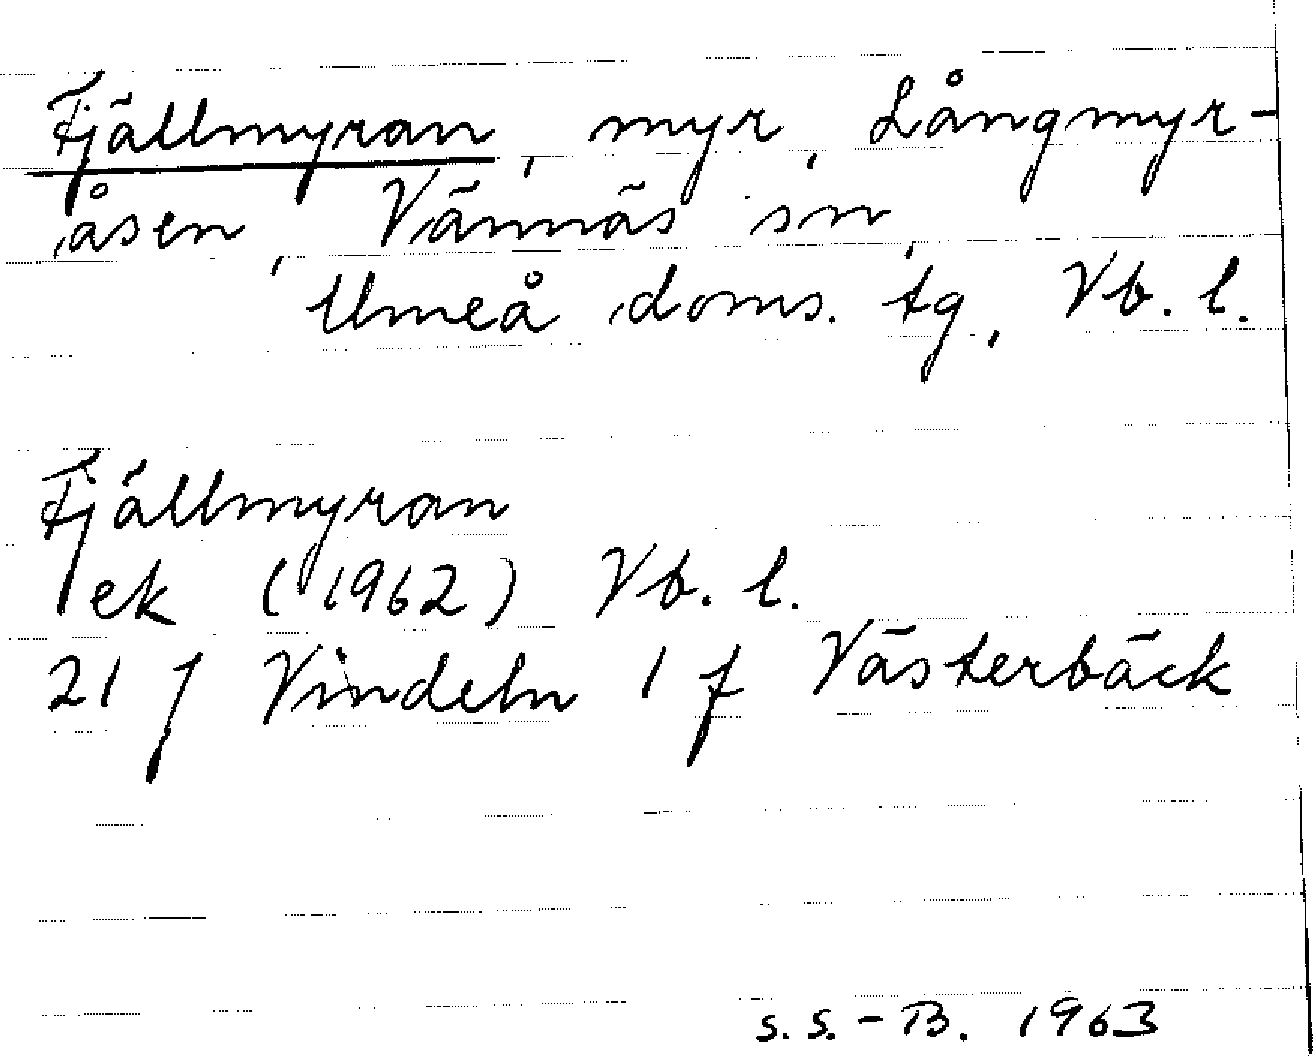 Fjällmyran, myr, Långmyr-
åsen, Vännäs sn,
Umeå doms. tg., Vb. l.
Fjällmyran
ek (1962) Vb. l.
21 J Vindeln 1 f Västerbäck
S. S. - B. 1963